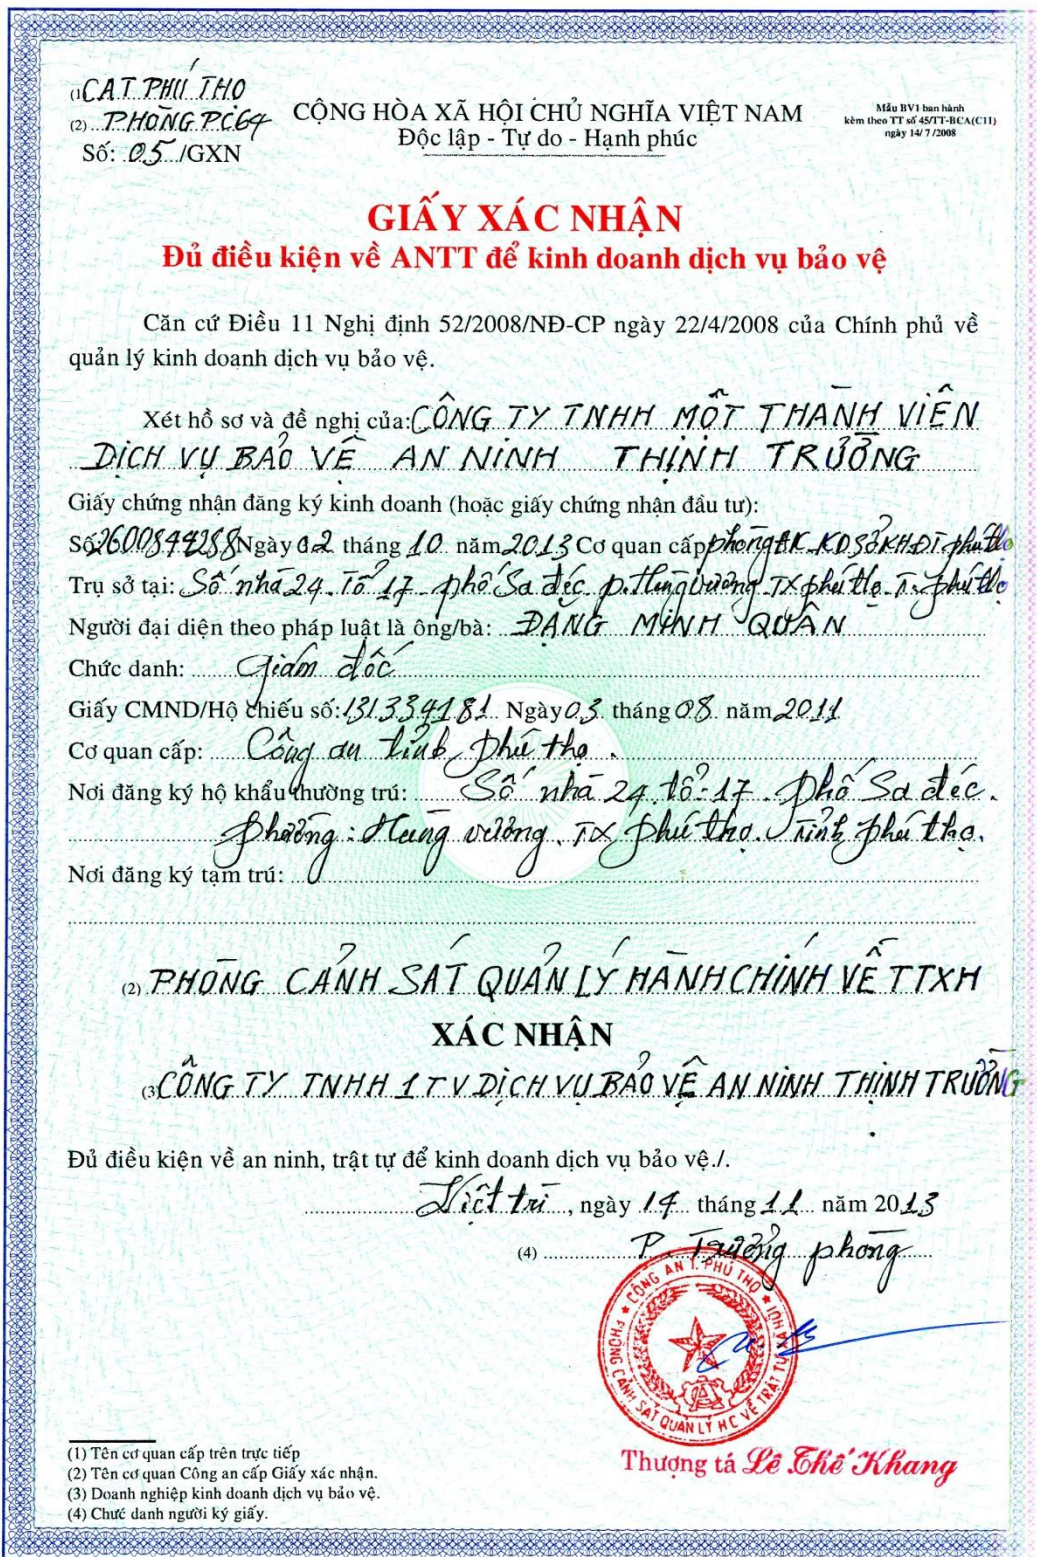 (1) CAT PHÚ THỌ
(2) PHÒNG PC64
Số: 05 /GXN
CỘNG HÒA XÃ HỘI CHỦ NGHĨA VIỆT NAM
Độc lập - Tự do - Hạnh phúc
Mẫu BV1 ban hành
kèm theo TT số 45/TT-BCA(C11)
ngày 14/ 7 /2008
GIẤY XÁC NHẬN
Đủ điều kiện về ANTT để kinh doanh dịch vụ bảo vệ
Căn cứ Điều 11 Nghị định 52/2008/NĐ-CP ngày 22/4/2008 của Chính phủ về
quản lý kinh doanh dịch vụ bảo vệ.
Xét hồ sơ và đề nghị của: CÔNG TY TNHH MỘT THÀNH VIÊN
DỊCH VỤ BẢO VỆ AN NINH THỊNH TRƯỜNG
Giấy chứng nhận đăng ký kinh doanh (hoặc giấy chứng nhận đầu tư):
Số 2600844288 Ngày 02 tháng 10 năm 2013 Cơ quan cấp phòng ĐK KD Sở KH ĐT phú thọ
Trụ sở tại: Số nhà 24 Tổ 17 phố Sa đéc p. Hùng vương TX phú thọ T. phú thọ
Người đại diện theo pháp luật là ông/bà: ĐẶNG MINH QUÂN
Chức danh: Giám đốc
Giấy CMND/Hộ chiếu số: 131334181 Ngày 03 tháng 08 năm 2011
Cơ quan cấp: Công an tỉnh phú thọ.
Nơi đăng ký hộ khẩu thường trú: Số nhà 24 tổ: 17. phố Sa đéc.
phường: Hùng vương. TX phú thọ. Tỉnh phú thọ.
Nơi đăng ký tạm trú:
(2) PHÒNG CẢNH SÁT QUẢN LÝ HÀNH CHÍNH VỀ TTXH
XÁC NHẬN
(3) CÔNG TY TNHH 1 TV DỊCH VỤ BẢO VỆ AN NINH THỊNH TRƯỜNG
Đủ điều kiện về an ninh, trật tự để kinh doanh dịch vụ bảo vệ./.
Việt trì, ngày 14 tháng 11 năm 2013
(4) P. Trưởng phòng
CÔNG AN T. PHÚ THỌ
PHÒNG CẢNH SÁT QUẢN LÝ HC VỀ TRẬT TỰ XÃ HỘI
Thượng tá Lê Thế Khang
(1) Tên cơ quan cấp trên trực tiếp
(2) Tên cơ quan Công an cấp Giấy xác nhận.
(3) Doanh nghiệp kinh doanh dịch vụ bảo vệ.
(4) Chức danh người ký giấy.